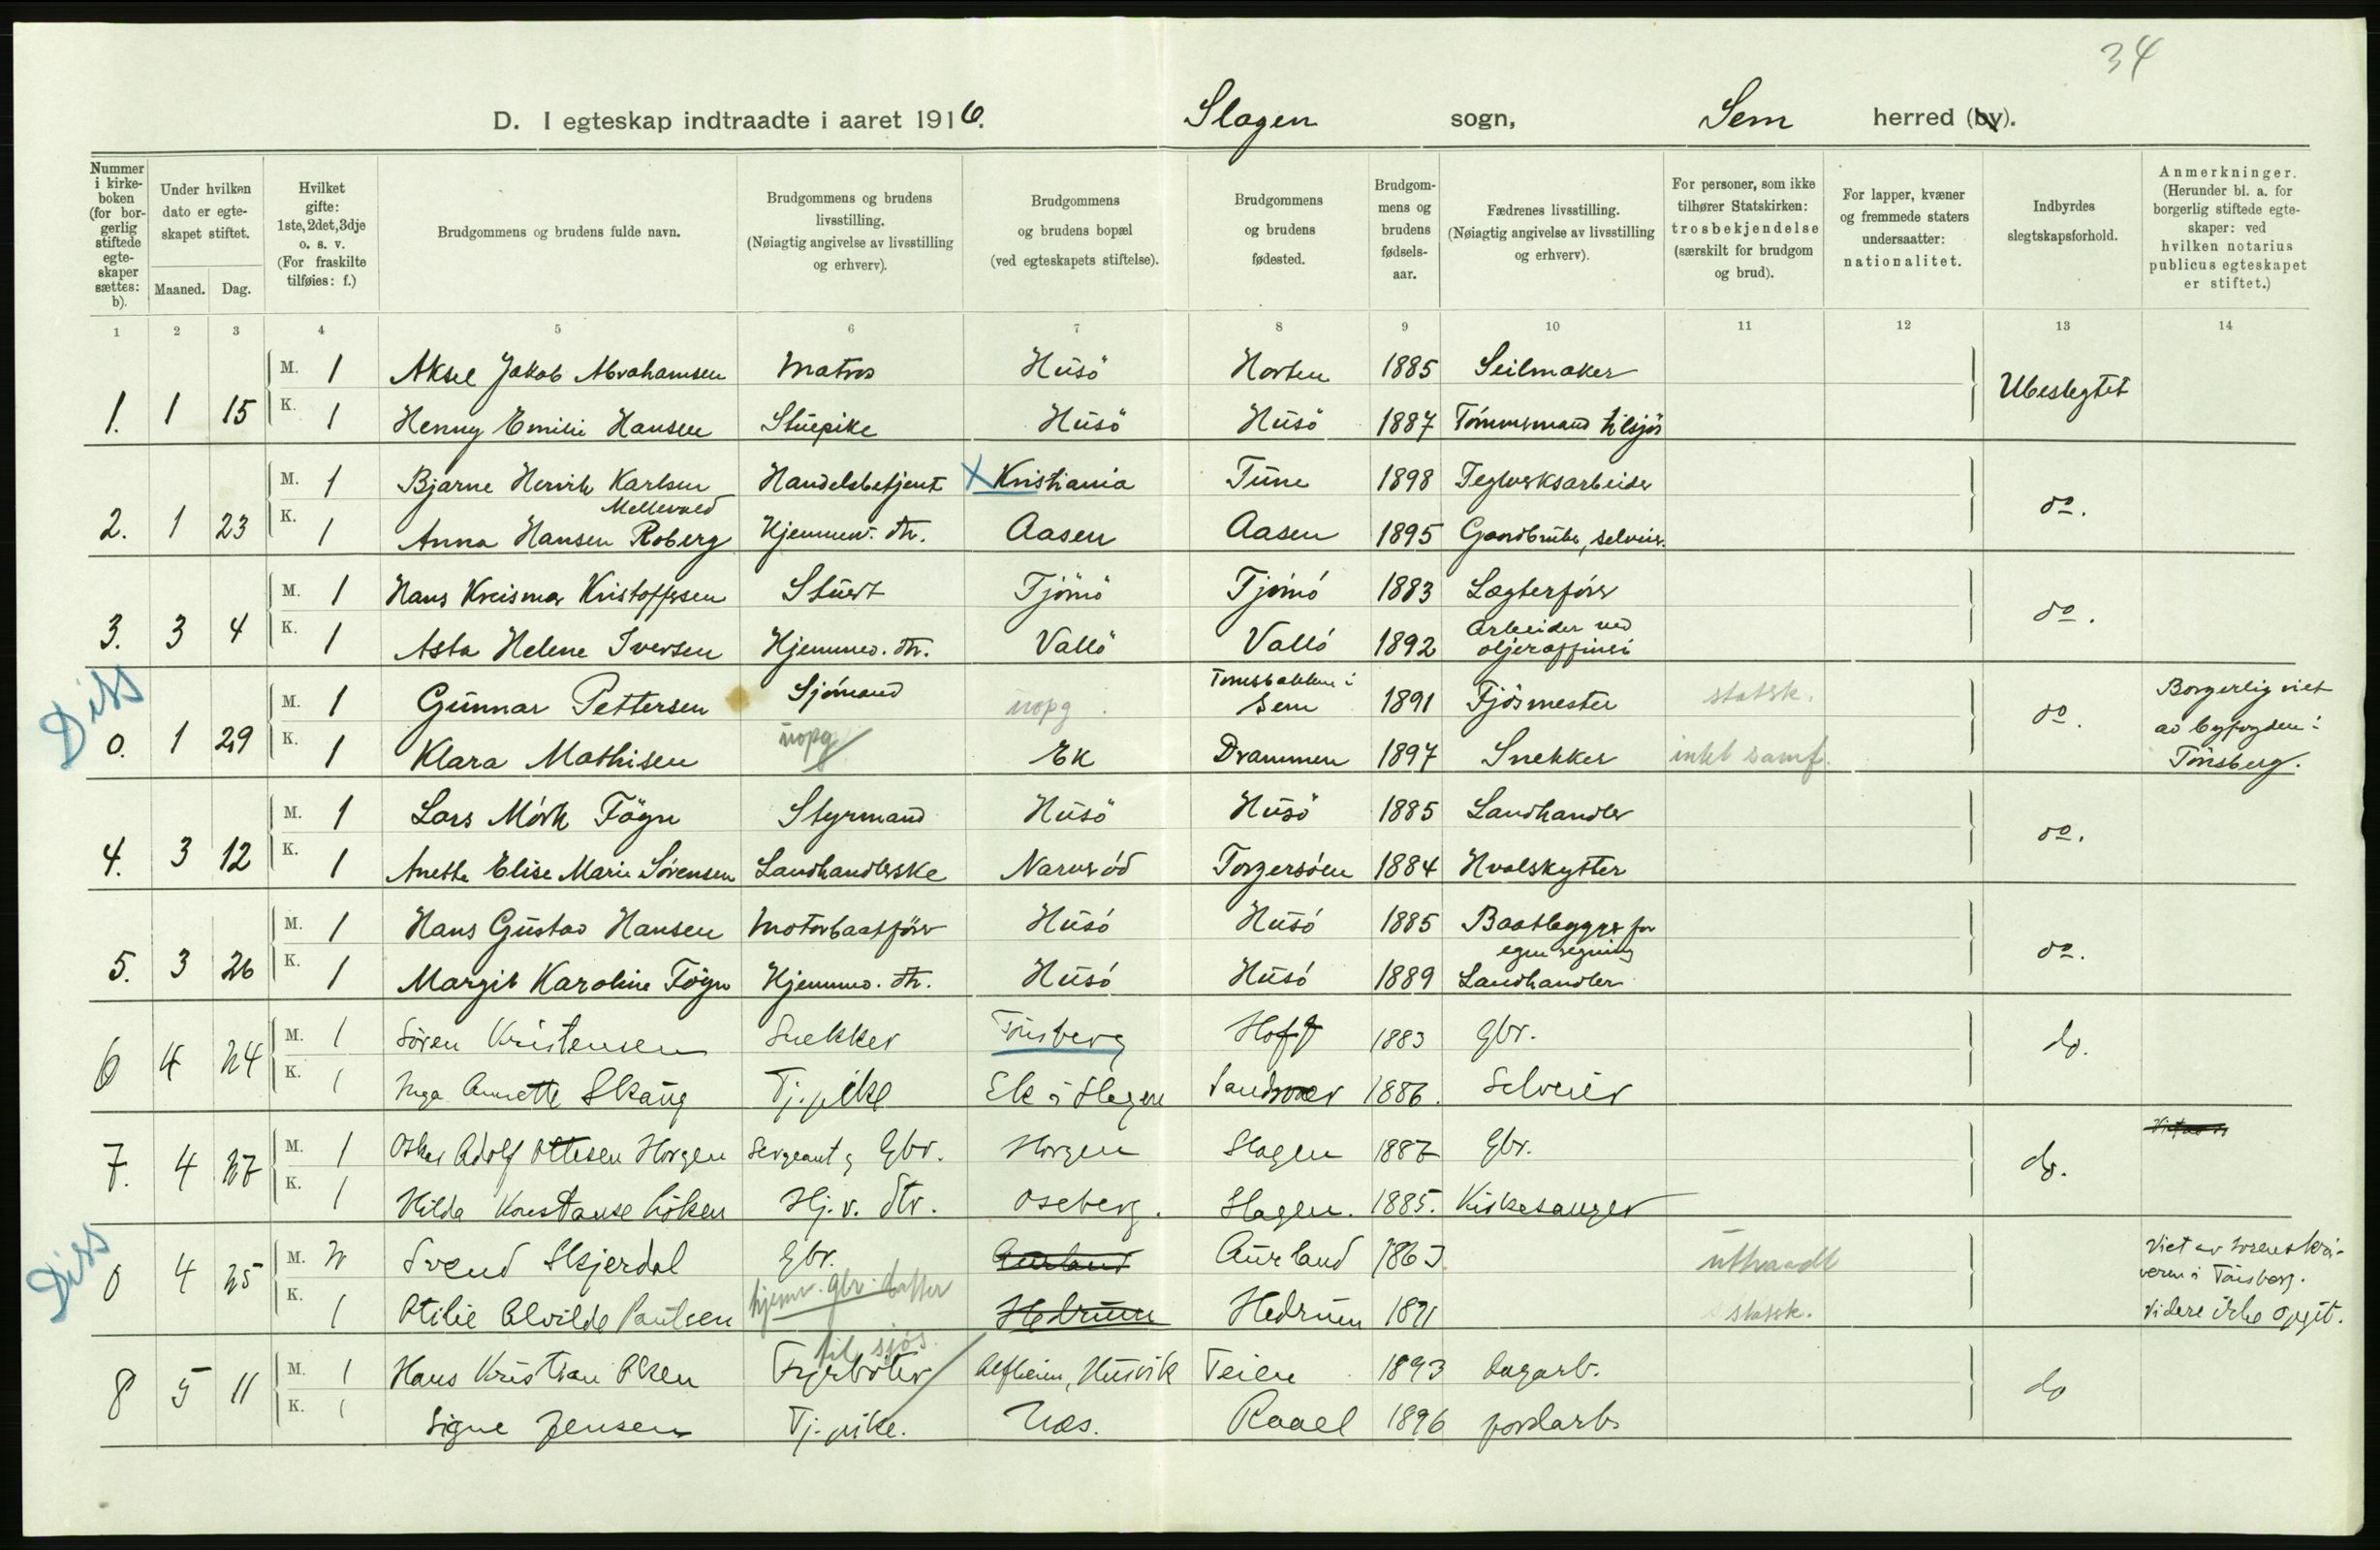 34
D. I egteskap indtraadte i aaret 1916. Slagen sogn, Sem herred (by).
Nummer i kirkeboken (for borgerlig stiftede egteskaper sættes: b).
Under hvilken dato er egteskapet stiftet.
Maaned. Dag.
Hvilket gifte: 1ste, 2det, 3dje o. s. v. (For fraskilte tilføies: f.)
Brudgommens og brudens fulde navn.
Brudgommens og brudens livsstilling. (Nøiagtig angivelse av livsstilling og erhverv).
Brudgommens og brudens bopæl (ved egteskapets stiftelse).
Brudgommens og brudens fødested.
Brudgommens og brudens fødselsaar.
Fædrenes livsstilling. (Nøiagtig angivelse av livsstilling og erhverv).
For personer, som ikke tilhører Statskirken: trosbekjendelse (særskilt for brudgom og brud).
For lapper, kvæner og fremmede staters undersaatter: nationalitet.
Indbyrdes slegtskapsforhold.
Anmerkninger. (Herunder bl. a. for borgerlig stiftede egteskaper: ved hvilken notarius publicus egteskapet er stiftet.)
1 2 3 4 5 6 7 8 9 10 11 12 13 14
M. 1 Aksel Jakob Abrahamsen Matros Husö Horten 1885 Seilmaker Ubeslegtet
1. 1 15 K. 1 Henny Emilie Hansen Stuepike Husö Husö 1887 Tömmermand tilsjös
M. 1 Bjarne Henrik Karlsen Handelsbetjent X Kristiania Tune 1898 Teglverksarbeider do.
Mellevold
2. 1 23 K. 1 Anna Hansen Roberg Hjemmev. dtr. Aasen Aasen 1895 Gaardbruker, selveier.
M. 1 Hans Kreismar Kristoffersen Stuert Tjömö Tjömö 1883 Lægterförer do.
3. 3 4 K. 1 Asta Helene Iversen Hjemmev. dtr. Vallö Vallö 1892 Arbeider ved oljeraffineri
Diss
M. 1 Gunnar Pettersen Sjömand uopg. Tomsbakken i Sem 1891 Fjösmester statsk. do. Borgerlig viet
av byfogden i
0. 1 29 K. 1 Klara Mathisen uopg Ek Drammen 1897 Snekker intet samf. Tönsberg.
M. 1 Lars Mörk Fögn Styrmand Husö Husö 1885 Landhandler do.
4. 3 12 K. 1 Anette Elise Marie Sörensen Landhandlerske Narveröd Torgersöen 1884 Hvalskytter
M. 1 Hans Gustav Hansen Motorbaatförer Husö Husö 1885 Baatbygger for egen regning do.
5. 3 26 K. 1 Margit Karoline Fögn Hjemmev. dtr. Husö Husö 1889 Landhandler
M. 1 Sören Kristensen Snekker Tönsberg Hoff 1883 Gbr. do.
6 4 24 K. 1 Inga Annette Skaug Tj. pike Ek i Slagen Sandsvær 1886. Selveier
M. 1 Oskar Adolf Ottesen Horgen Sergeant & Gbr. Horgen Slagen 1887 Gbr. do.
7. 4 27 K. 1 Hilda Konstanse Löken Hj. v. dtr. Oseberg. Slagen. 1885. Kirkesanger
Diss
M. 2 Svend Skjerdal Gbr. Aurland Aurland 1863 uttraadt Viet av sorenskri-
veren i Tönsberg.
0 4 25 K. 1 Otilie Alvilde Paulsen hjemv. gbr. datter Hedrum Hedrum 1871 statsk. Videre ikke opgit.
M. 1 Hans Kristian Olsen Fyrböter til sjös Alfheim, Husvik Teien 1893 Dagarb. do
8 5 11 K. 1 Signe Jensen Tj. pike. Næs. Raael 1896 jordarb.